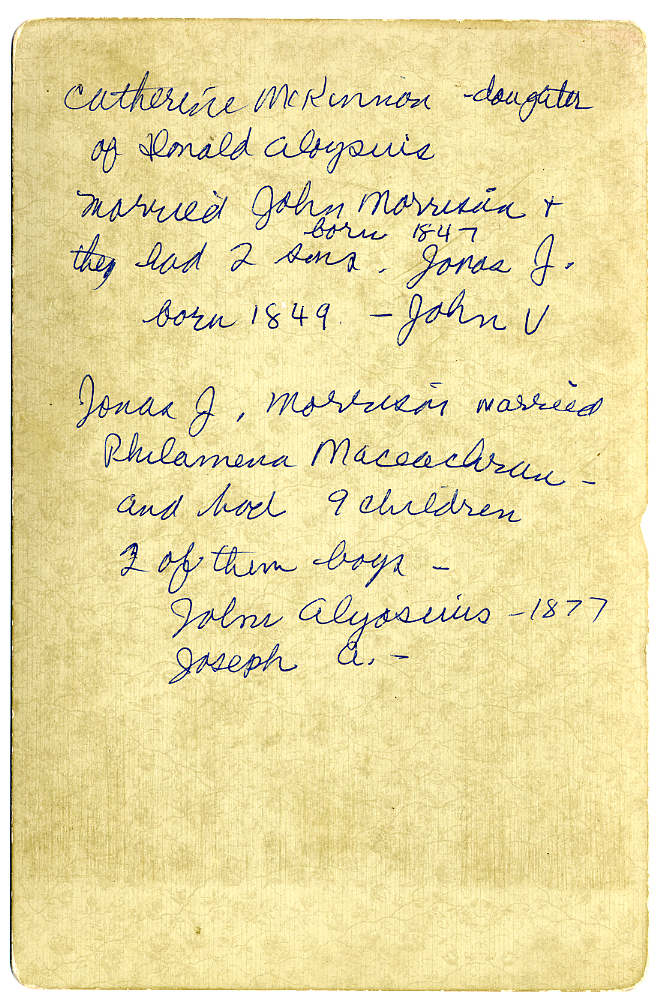 Catherine McKinnon - daughter
of Donald Aloysuis
married John Morrison +
born 1847
they had 2 sons. Jonas J.
born 1849 - John V
Jonas J. Morrison married
Philamena Maceachran -
and had 9 children
2 of them boys -
John Alyosuius - 1877
Joseph A. -